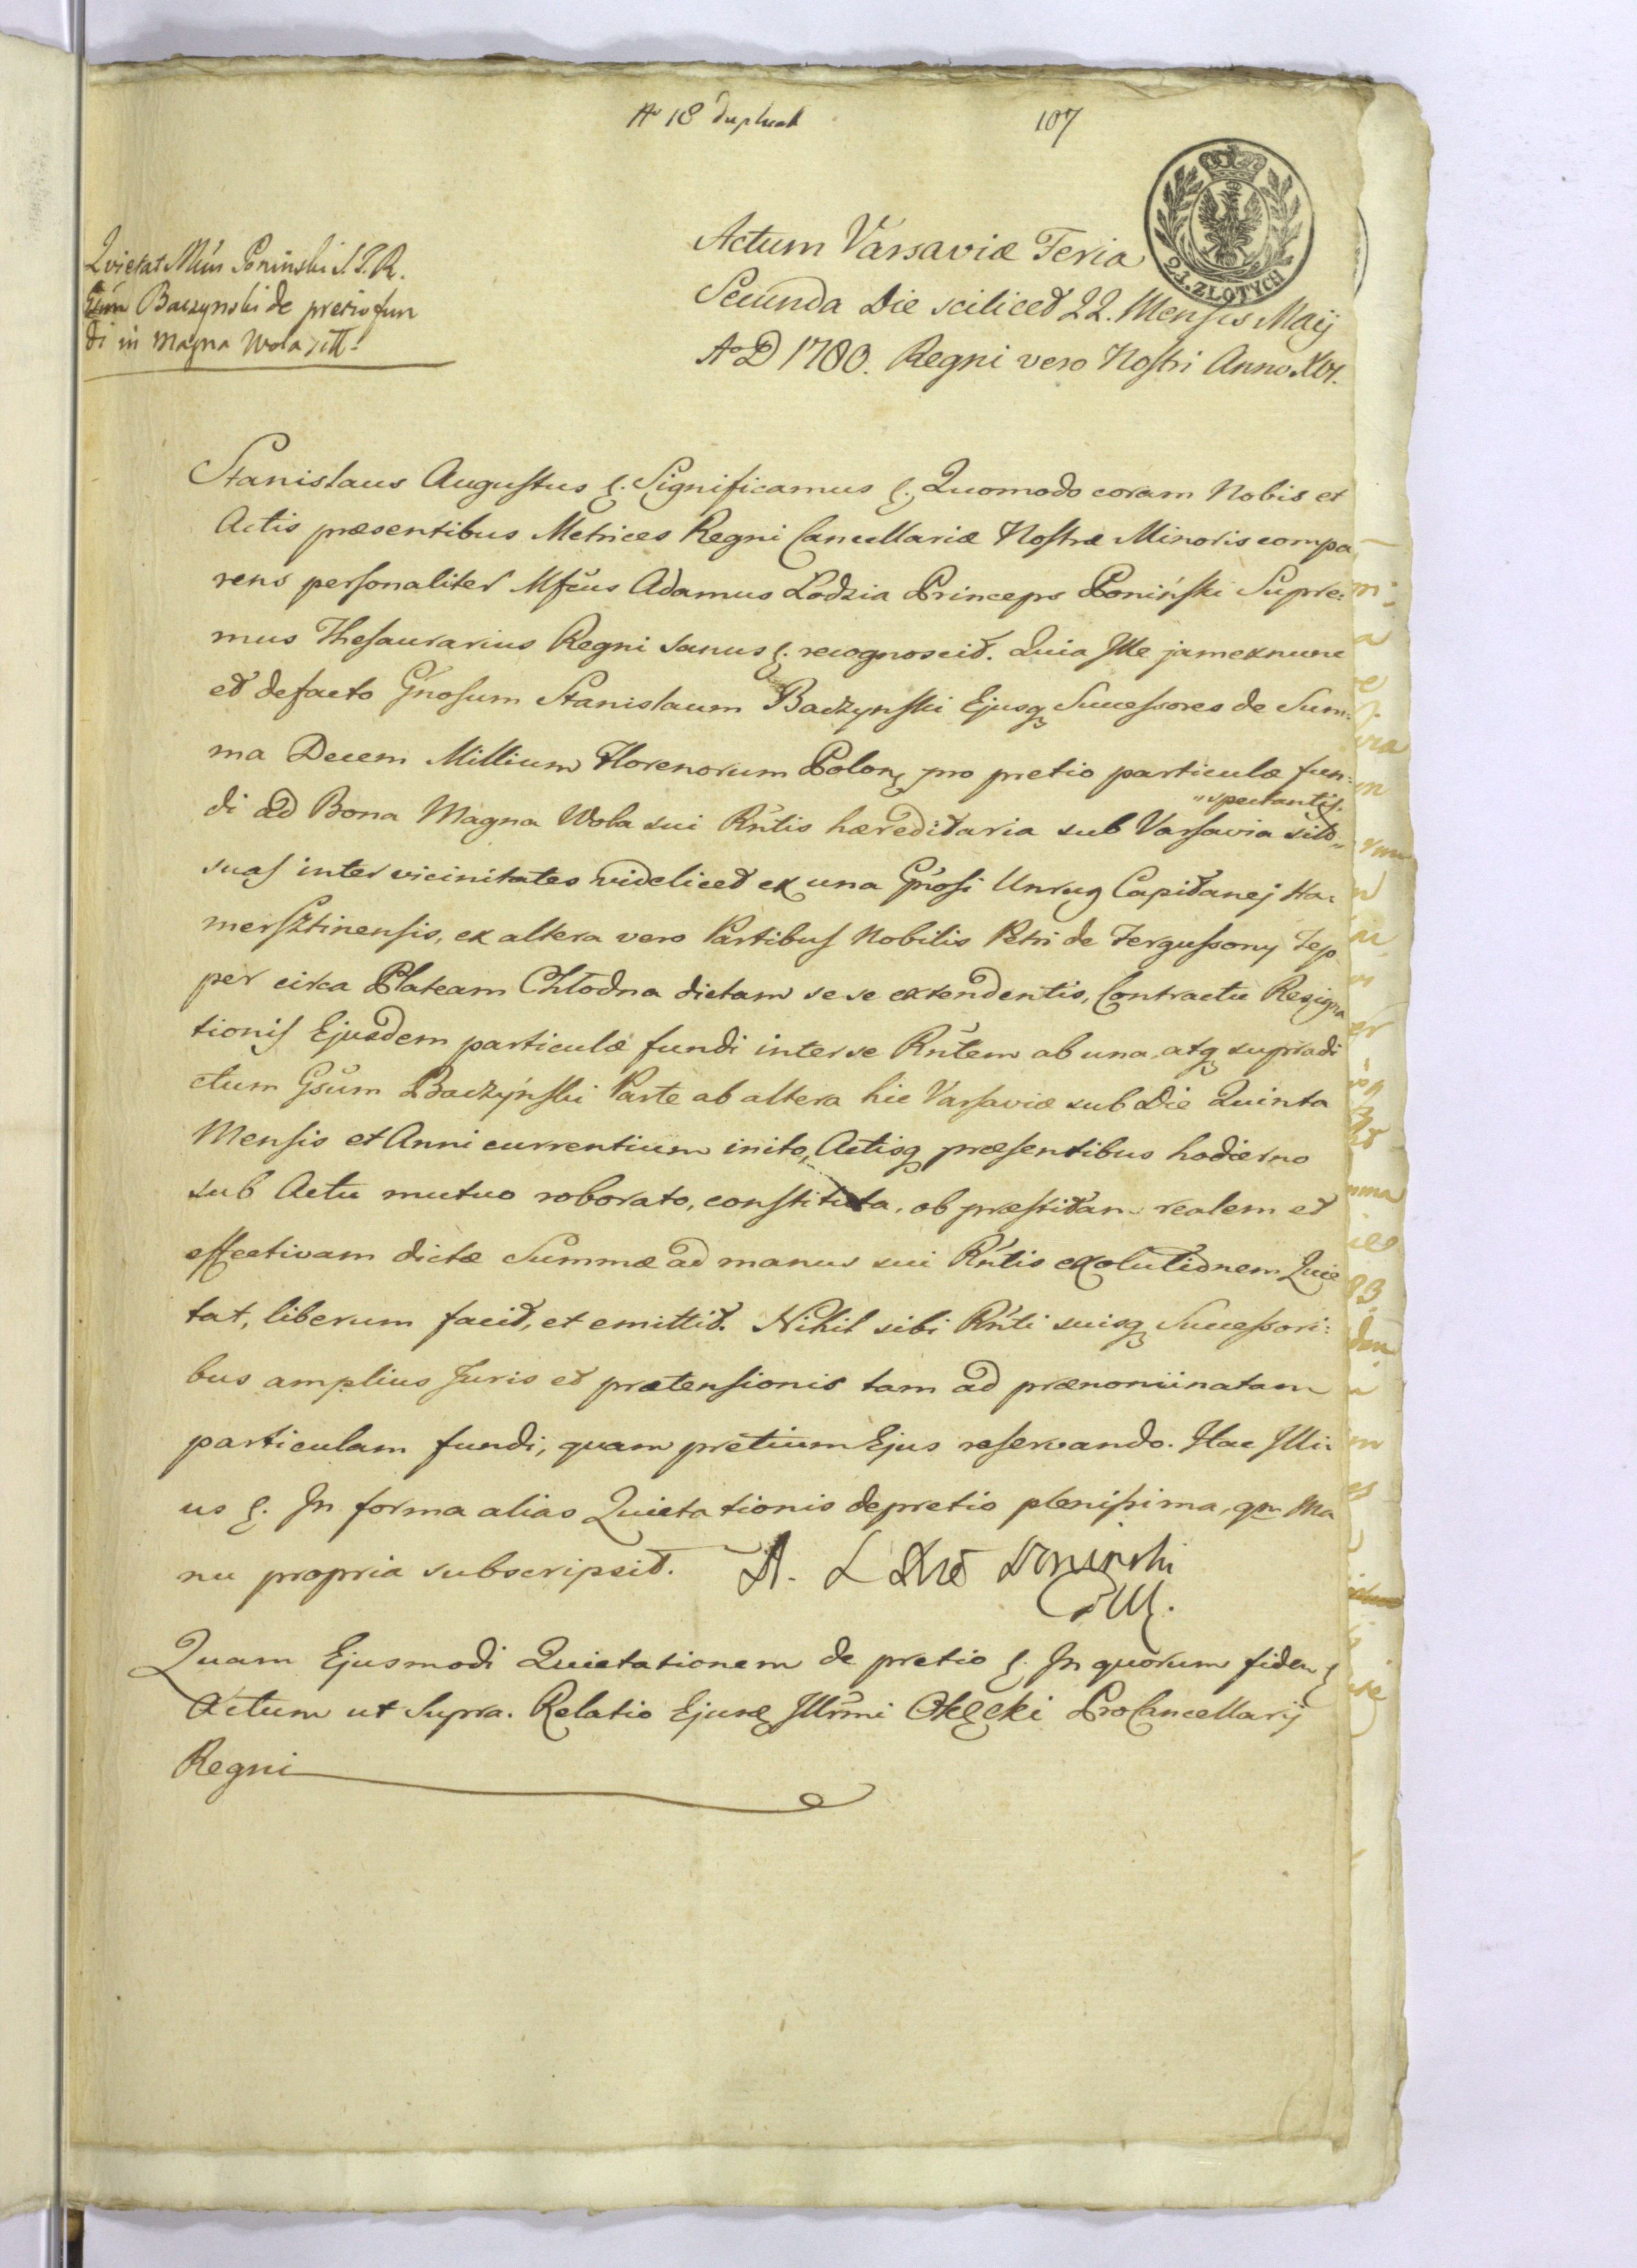 No 18 duplicat
107
2 I. ZLOTYCH
Quietat Mcus Poninski S T. R.
Gsum Baczynski de pretio fun
di in Magna Wola sitt.
Actum Varsaviæ Feria
Secunda Die scilicet 22. Mensis Maij
Ao D 1780. Regni vero Nostri Anno XVI.
Stanislaus Augustus &. Significamus &. Quomodo coram Nobis et
Actis præsentibus Metrices Regni Cancellariæ Nostræ Minoris compa
rens personaliter Mfcus Adamus Lodzia Princeps Poniński Supre:
mus Thesaurarius Regni sanus &. recognoscit. Quia Ille jam exnunc
et defacto Gnosum Stanislaum Baczynski Ejusq Successores de Sum:
ma Decem Millium Florenorum Polon, pro pretio particulæ fun:
"spectantis.
di ad Bona Magna Wola sui Rntis hæreditaria sub Varsavia sito"
suas inter vicinitates videlicet ex una Gnosi Unrug Capitanej Ha:
mersztinensis, ex altera vero Partibus Nobilis Petri de Fergussony Tep
per circa Plateam Chłodna dictam sese extendentis, Contractu Resigna
tionis Ejusdem particulæ fundi inter se Rntem ab una, atq supradi
ctum Gsum Baczyński Parte ab altera hic Varsaviæ sub Die Quinta
Mensis et Anni currentium inito, Actisq præsentibus hodierno
sub Actu mutuo roborato, constituta, ob præstitam realem et
effectivam dictæ Summæ ad manus sui Rntis exolutionem Quie
tat, liberum facit, et emittit. Nihil sibi Rnti suisq Successori:
bus amplius Juris et prætensionis tam ad prænominatam
particulam fundi, quam pretium Ejus reservando. Hac Illi:
us &. In forma alias Quietationis de pretio plenissima, qm Ma
nu propria subscripsit. A. L Poninski
Quam Ejusmodi Quietationem de pretio &. In quorum fidem &
Actum ut Supra. Relatio Ejusd Illrmi Okęcki ProCancellarij
Regni